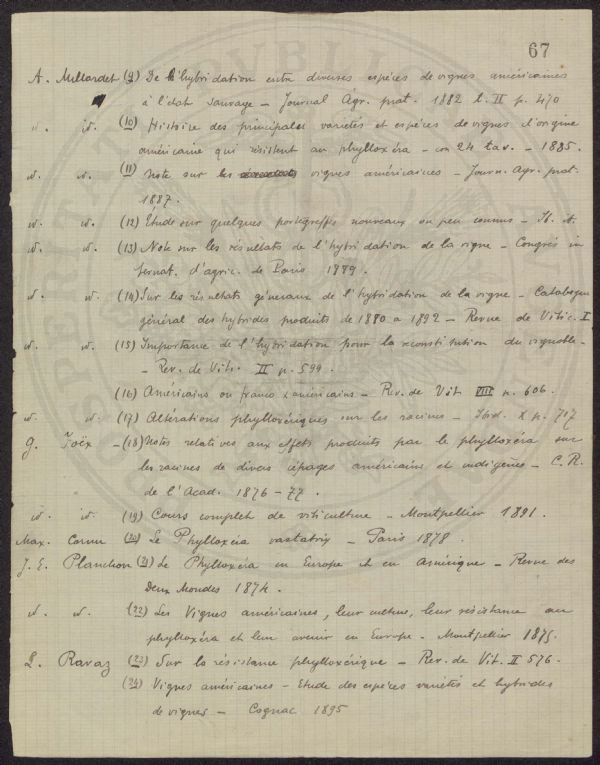 67
A. Millardet (9) De l'hybridation entre diverses espèces de vignes américaines
à l'état sauvage – Journal Agr. prat. 1882 t. II p. 470
id. id. (10) Histoire des principales variétés et espèces de vignes d'origine
américaine qui résistent au phylloxéra – con 24 tav. – 1885.
id. id. (11) Note sur les vignes américaines – Journ. Agr. prat.
1887.
id. id. (12) Étude sur quelques portegreffes nouveaux ou peu connus – Id. id.
id. id. (13) Note sur les résultats de l'hybridation de la vigne – Congrès in
ternat. d'agric. de Paris 1889.
id. id. (14) Sur les résultats géneraux de l'hybridation de la vigne – Catalogue
général des hybrides produits de 1880 a 1892 – Revue de Vitic. I
id. id. (15) Importance de l'hybridation pour la reconstitution du vignoble –
– Rev. de Vit. II p. 599.
(16) Américains ou franco x américains – Rev. de Vit VIII p. 606.
id. id. (17) Altérations phylloxériques sur les racines – Ibid. X p. 717
G. Foëx – (18) Notes relatives aux effets produits par le phylloxéra sur
les racines de divers cépages américains et indigènes – C. R.
de l'Acad. 1876 – 77.
id. id. (19) Cours complet de viticulture – Montpellier 1891.
Max. Cornu (20) Le Phylloxéra vastatrix – Paris 1878.
J. E. Planchon (21) Le Phylloxéra en Europe et en Amérique – Revue des
Deux Mondes 1874.
id. id. (22) Les Vignes américaines, leur culture, leur résistance au
phylloxéra et leur avenir en Europe – Montpellier 1875.
L. Ravaz (23) Sur la résistance phylloxérique – Rev. de Vit. II 576.
(24) Vignes américaines – Etude des espèces variétés et hybrides
de vignes – Cognac 1895